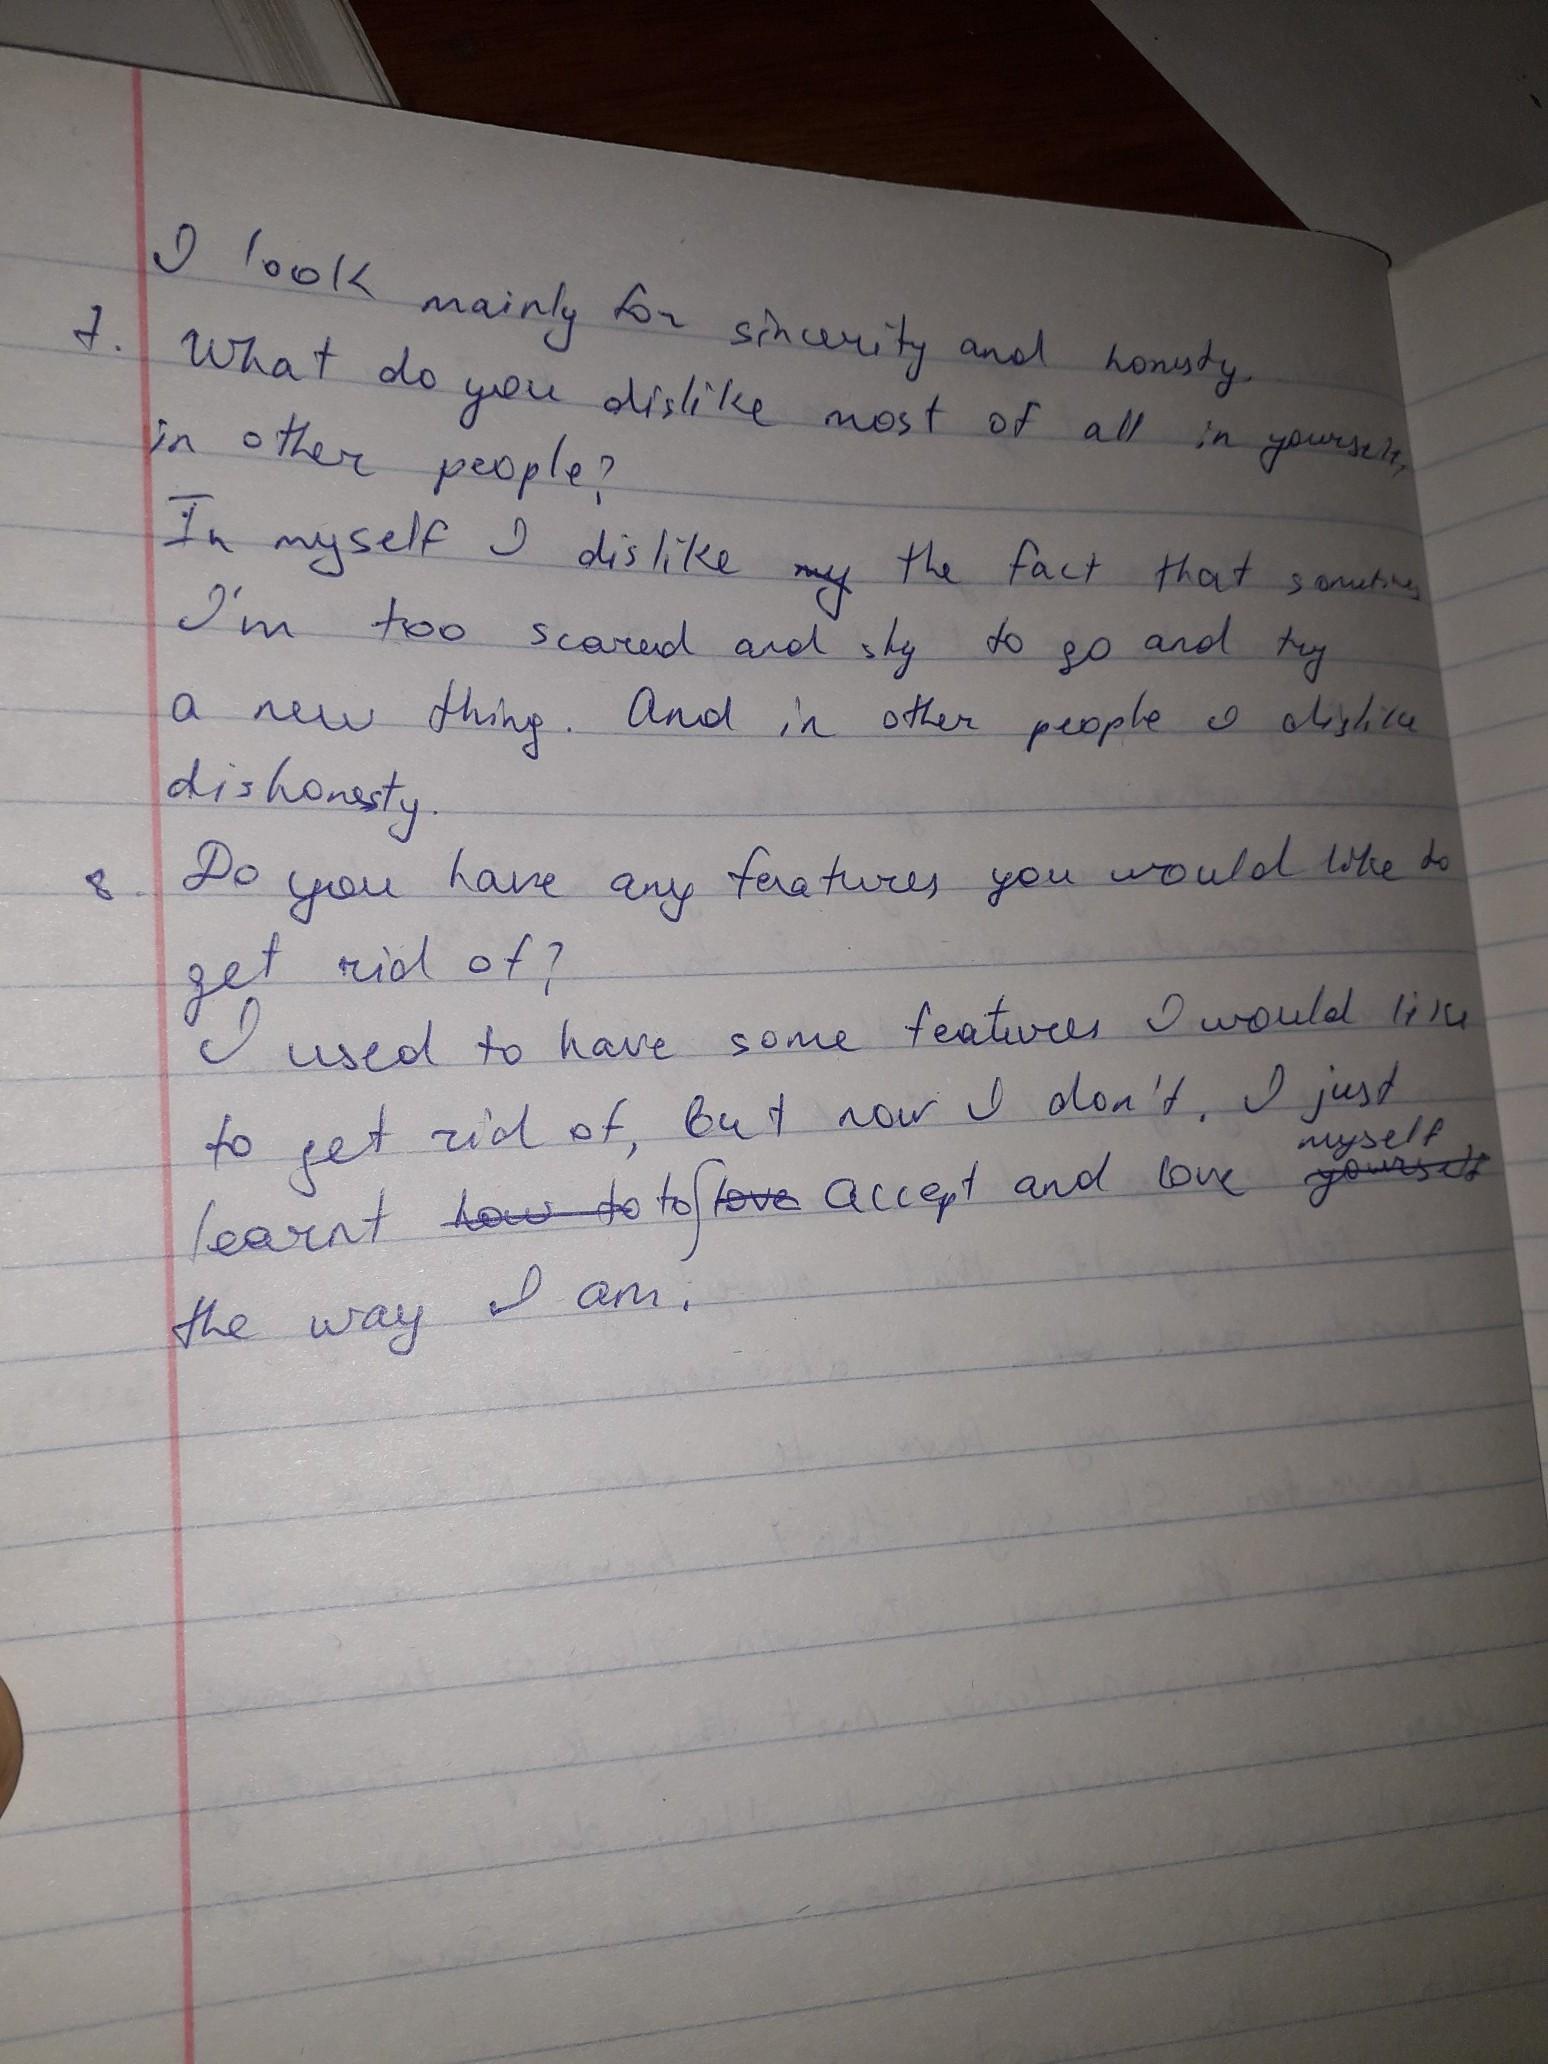 I look mainly for sincerity and honesty.
7. What do you dislike most of all in yourself,
in other people?
In myself I dislike my the fact that sometimes
I'm too scared and shy to go and try
a new thing. And in other people I dislike
dishonesty.
8. Do you have any features you would like to
get rid of?
I used to have some features I would like
to get rid of, but now I don't. I just
myself
learnt how to to love accept and love yourself
the way I am.